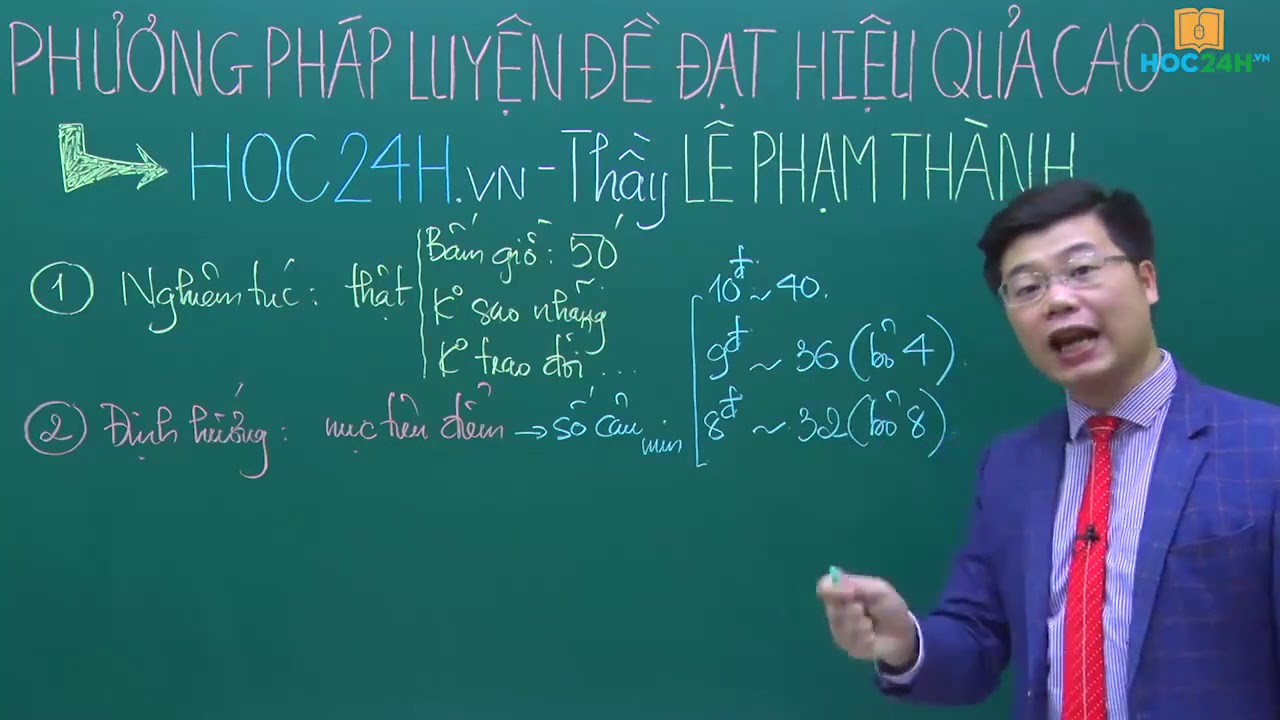 PHƯƠNG PHÁP LUYỆN ĐỀ ĐẠT HIỆU QUẢ CAO
HOC24H.VN
HOC24H.VN - Thầy LÊ PHẠM THÀNH
① Nghiêm túc: thật
Bấm giờ: 50'
K° sao nhãng
K° trao đổi ...
② Định hướng: mục tiêu điểm → số câu min
10đ ~ 40.
9đ ~ 36 (bỏ 4).
8đ ~ 32 (bỏ 8).